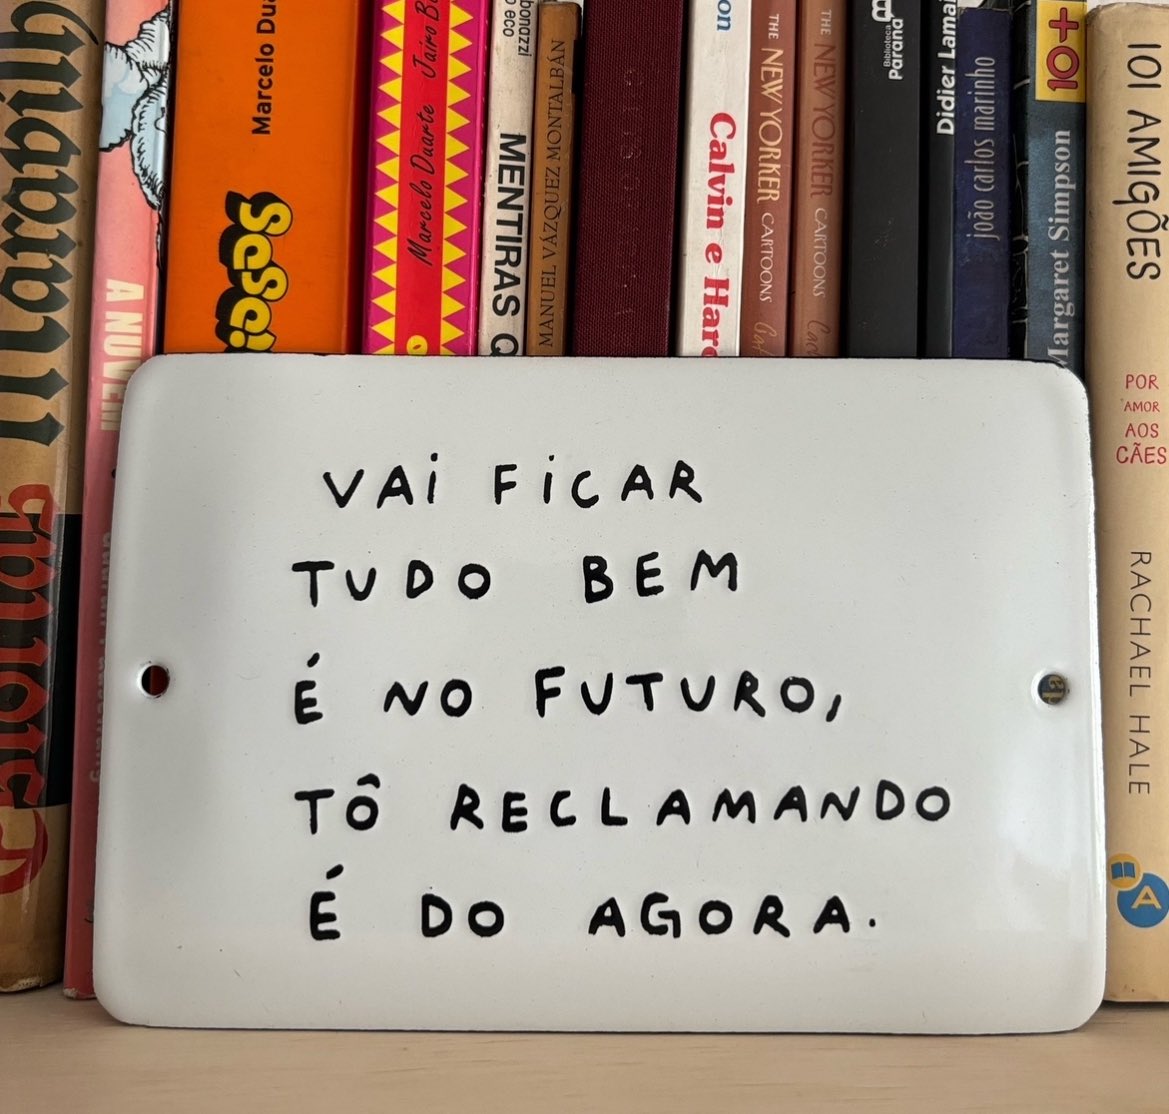 Marcelo Du
Marcelo Duarte Jairo B
bonazzi
o eco
MENTIRAS Q
MANUEL VÁZQUEZ MONTALBÁN
on
Calvin e Har
THE NEW YORKER CARTOONS
THE NEW YORKER CARTOONS
Biblioteca
Paraná
Didier Lama
joão carlos marinho
+101
Margaret Simpson
101 AMIGÕES
POR
AMOR
AOS
CÃES
RACHAEL HALE
A NUVEM
VAI FICAR
TUDO BEM
É NO FUTURO,
TÔ RECLAMANDO
É DO AGORA.
A